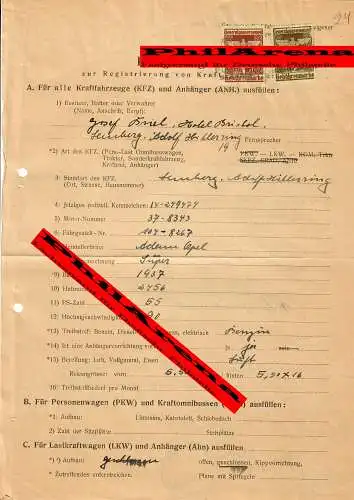 24
PhilArena
Fachversand für Deutsche Philatelie
zur Registrierung von Kraft
A. Für alle Kraftfahrzeuge (KFZ) und Anhänger (ANH.) ausfüllen:
1) Besitzer, Halter oder Verwahrer
(Name, Anschrift, Beruf):
Josef Kniel, Hotel Bristol,
Lemberg, Adolf Hitlerring
Fernsprecher
19
*2) Art des KFZ. (Pers.-Last Omnibuswagen,
Traktor, Sonderkraftfahrzeug,
Kraftrad, Anhänger)
PKW. — LKW. — KOM. Trakt
3) Standort des KFZ.
(Ort, Strasse, Hausnummer)
Lemberg, Adolf Hitlerring
4) Jetziges polizeil. Kennzeichen: IV-279477
5) Motor-Nummer 37-8343
6) Fahrgestell-Nr. 107-8267
Herstellerfirma Adam Opel
Super
1937
10) Hubraum
11) PS-Zahl 55
12) Höchstgeschwindigkeit 90
*13) Treibstoff: Benzin, Diesel elektrisch Benzin
*14) Ist eine Anhängervorrichtung ja
*15) Bereifung: Luft, Vollgummi, Eisen Luft
Reifengrösse: vorn hinten 5,50x16
16) Treibstoffbedarf pro Monat
B. Für Personenwagen (PKW) und Kraftomnibussen ausfüllen:
*1) Aufbau: Limusine, Kabriolett, Schiebedach
2) Zahl der Sitzplätze Stehplätze
C. Für Lastkraftwagen (LKW) und Anhänger (Ahn) ausfüllen:
*) Aufbau: geschlossen offen, geschlossen, Kippvorrichtung,
* Zutreffendes unterstreichen. Plane mit Spriegeln
PhilArena